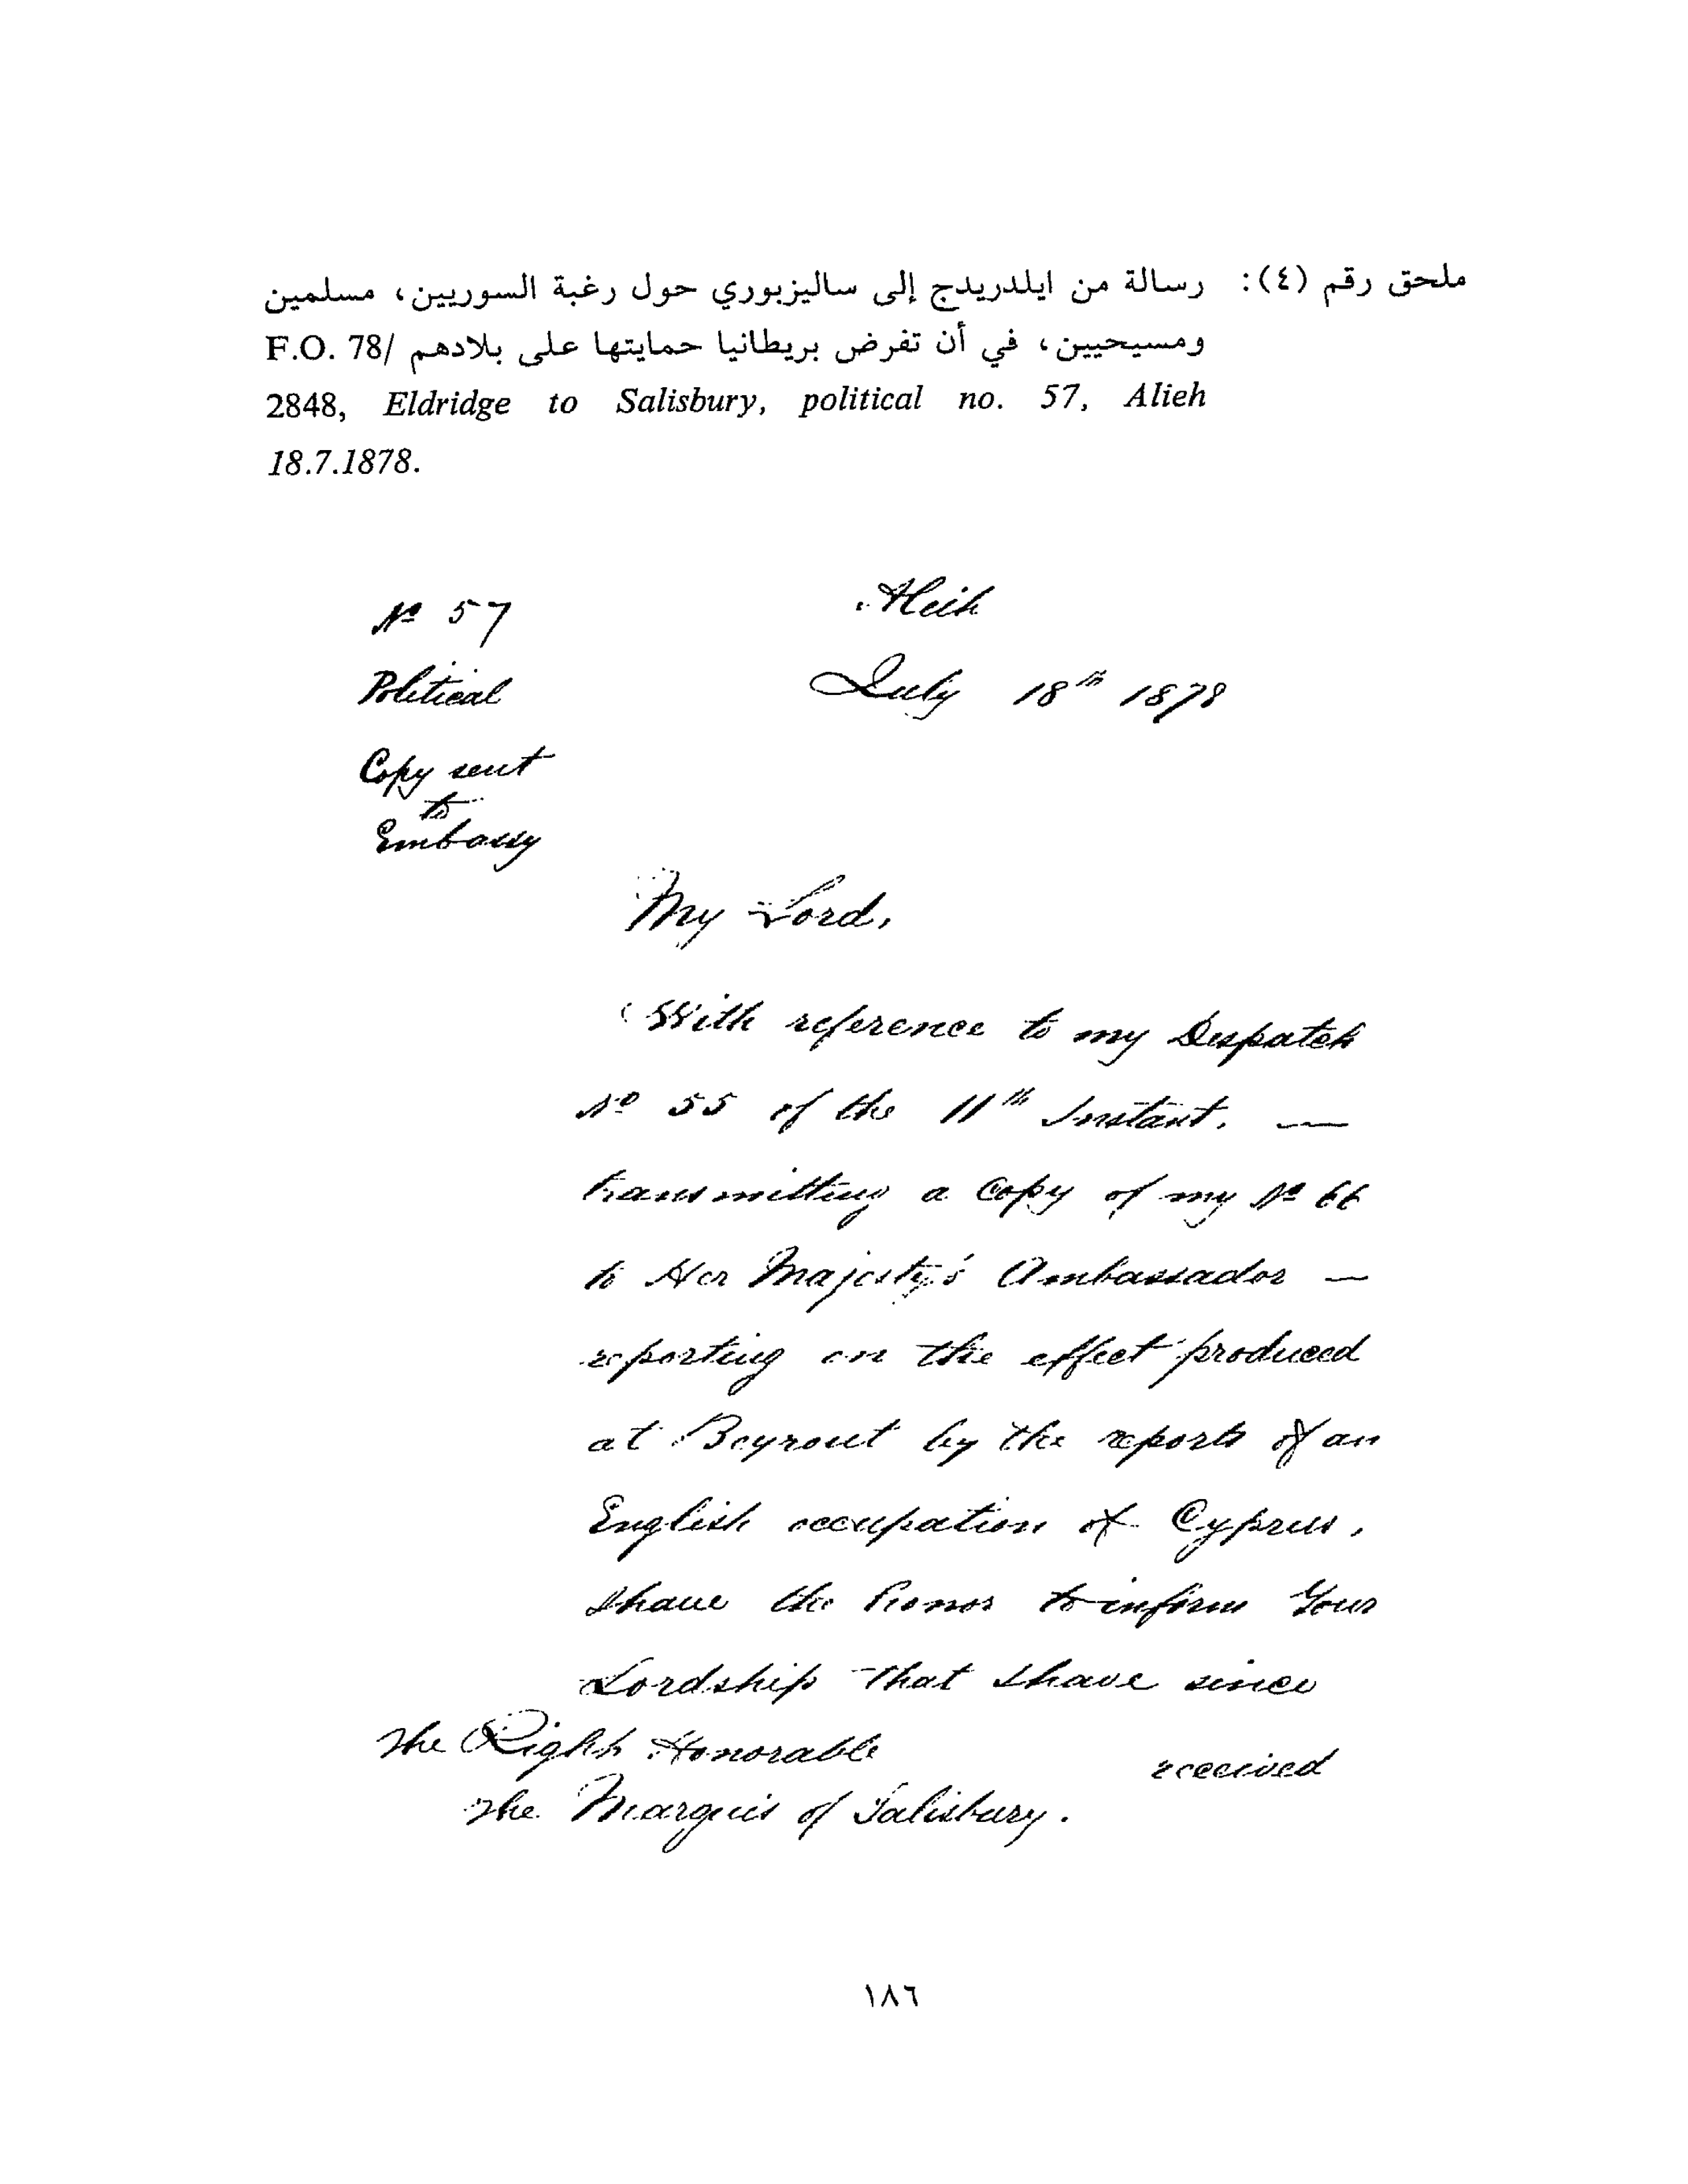 ملحق رقم (٤): رسالة من ايلدريدج إلى ساليزبوري حول رغبة السوريين، مسلمين
ومسيحيين، في أن تفرض بريطانيا حمايتها على بلادهم F.O. 78/
2848, Eldridge to Salisbury, political no. 57, Alieh
18.7.1878.
Nº 57
Alieh
Political
July 18th 1878
Copy sent
to
Embassy
My Lord,
With reference to my Despatch
Nº 55 of the 11th Instant. —
transmitting a Copy of my Nº 66
to Her Majesty's Ambassador —
reporting on the effect produced
at Beyrout by the reports of an
English occupation of Cyprus,
I have the honor to inform Your
Lordship that I have since
received
The Right Honorable
The Marquis of Salisbury.
١٨٦